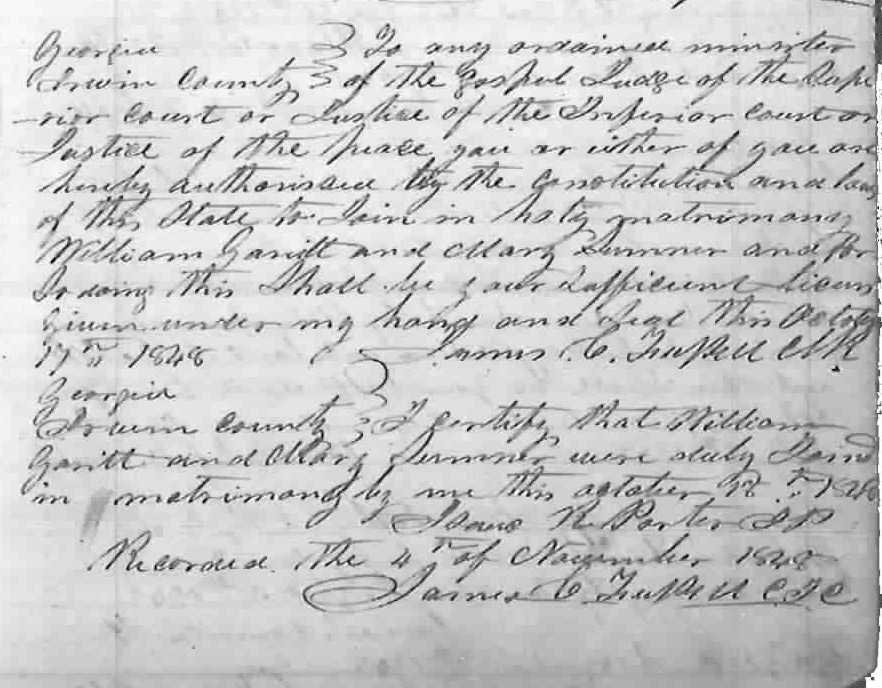 Georgia } To any ordained minister
Irwin County } of the gospel Judge of the Supe
-rior Court or Justice of the Inferior Court or
Justice of the peace you or either of you are
hereby authorised by the Constitution and laws
of this State to Join in holy matrimony
William Garitt and Mary Sumner and for
So doing this Shall be your Sufficient licens
given under my hand and Seal this October
17th 1848 James C. Clk
Georgia }
Irwin County } I certify that William
Garitt and Mary Sumner were duly Joind
in matrimony by me this october th 1848
R Porter J P
Recorded the 4th of November 1848
James C C I C